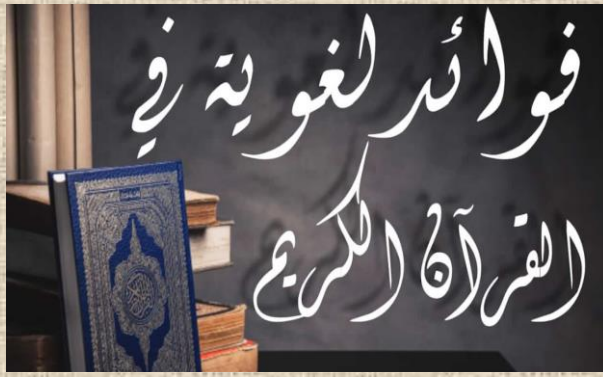 فوائد لغوية في
القرآن الكريم